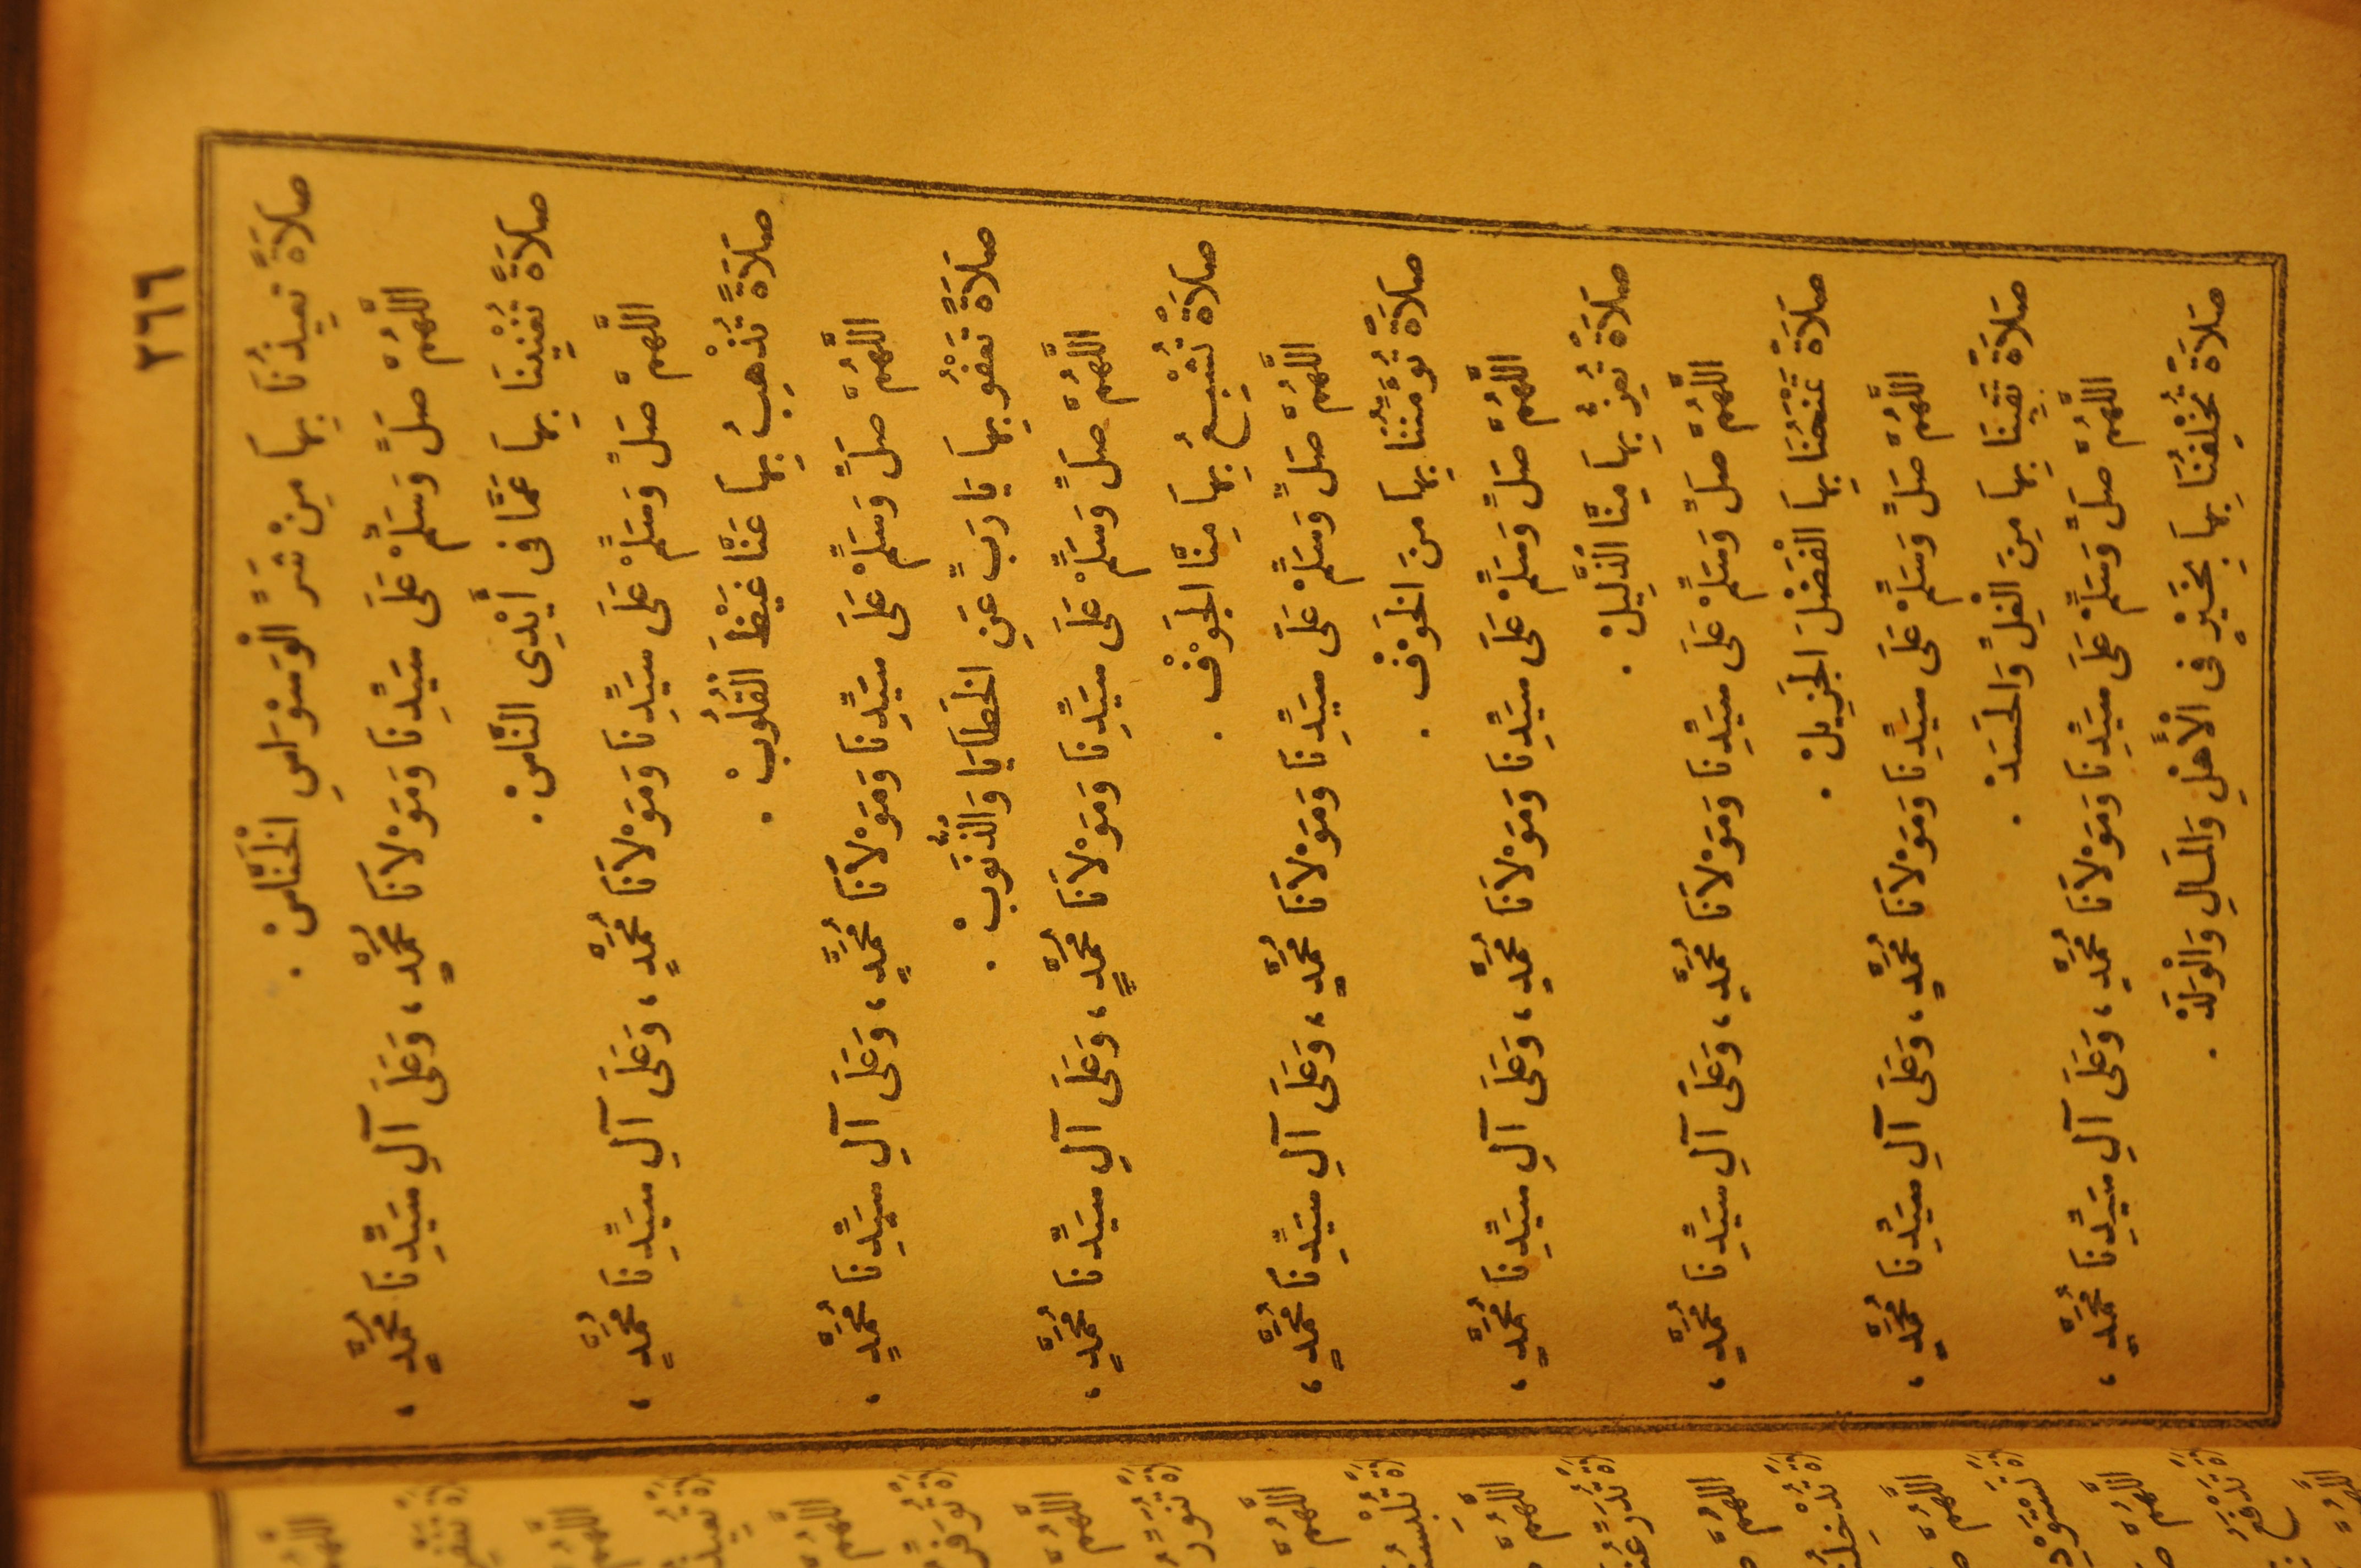 ٢٦٦
صَلَاةً تُعِيذُنَا بِهَا مِنْ شَرِّ الْوَسْوَاسِ الْخَنَّاسْ .
اللَّهُمَّ صَلِّ وَسَلِّمْ عَلَى سَيِّدِنَا وَمَوْلَانَا مُحَمَّدٍ ، وَعَلَى آلِ سَيِّدِنَا مُحَمَّدٍ ،
صَلَاةً تُغْنِينَا بِهَا عَمَّا فِى أَيْدِى النَّاسْ .
اللَّهُمَّ صَلِّ وَسَلِّمْ عَلَى سَيِّدِنَا وَمَوْلَانَا مُحَمَّدٍ ، وَعَلَى آلِ سَيِّدِنَا مُحَمَّدٍ ،
صَلَاةً تُذْهِبُ بِهَا عَنَّا غَيْظَ الْقُلُوبْ .
اللَّهُمَّ صَلِّ وَسَلِّمْ عَلَى سَيِّدِنَا وَمَوْلَانَا مُحَمَّدٍ ، وَعَلَى آلِ سَيِّدِنَا مُحَمَّدٍ ،
صَلَاةً تَعْفُو بِهَا يَا رَبِّ عَنِ الْخَطَايَا وَالذُّنُوبْ .
اللَّهُمَّ صَلِّ وَسَلِّمْ عَلَى سَيِّدِنَا وَمَوْلَانَا مُحَمَّدٍ ، وَعَلَى آلِ سَيِّدِنَا مُحَمَّدٍ ،
صَلَاةً تُشْبِعُ بِهَا مِنَّا الْجَوْفْ .
اللَّهُمَّ صَلِّ وَسَلِّمْ عَلَى سَيِّدِنَا وَمَوْلَانَا مُحَمَّدٍ ، وَعَلَى آلِ سَيِّدِنَا مُحَمَّدٍ ،
صَلَاةً تُؤَمِّنُنَا بِهَا مِنَ الْخَوْفْ .
اللَّهُمَّ صَلِّ وَسَلِّمْ عَلَى سَيِّدِنَا وَمَوْلَانَا مُحَمَّدٍ ، وَعَلَى آلِ سَيِّدِنَا مُحَمَّدٍ ،
صَلَاةً تُعِزُّ بِهَا مِنَّا الذَّلِيلْ .
اللَّهُمَّ صَلِّ وَسَلِّمْ عَلَى سَيِّدِنَا وَمَوْلَانَا مُحَمَّدٍ ، وَعَلَى آلِ سَيِّدِنَا مُحَمَّدٍ ،
صَلَاةً تَمْنَحُنَا بِهَا الْفَضْلَ الْجَزِيلْ .
اللَّهُمَّ صَلِّ وَسَلِّمْ عَلَى سَيِّدِنَا وَمَوْلَانَا مُحَمَّدٍ ، وَعَلَى آلِ سَيِّدِنَا مُحَمَّدٍ ،
صَلَاةً تَقِينَا بِهَا مِنَ الْغِلِّ وَالْحَسَدْ .
اللَّهُمَّ صَلِّ وَسَلِّمْ عَلَى سَيِّدِنَا وَمَوْلَانَا مُحَمَّدٍ ، وَعَلَى آلِ سَيِّدِنَا مُحَمَّدٍ ،
صَلَاةً تُخْلِفُنَا بِهَا بِخَيْرٍ فِى الْأَهْلِ وَالْمَالِ وَالْوَلَدْ .